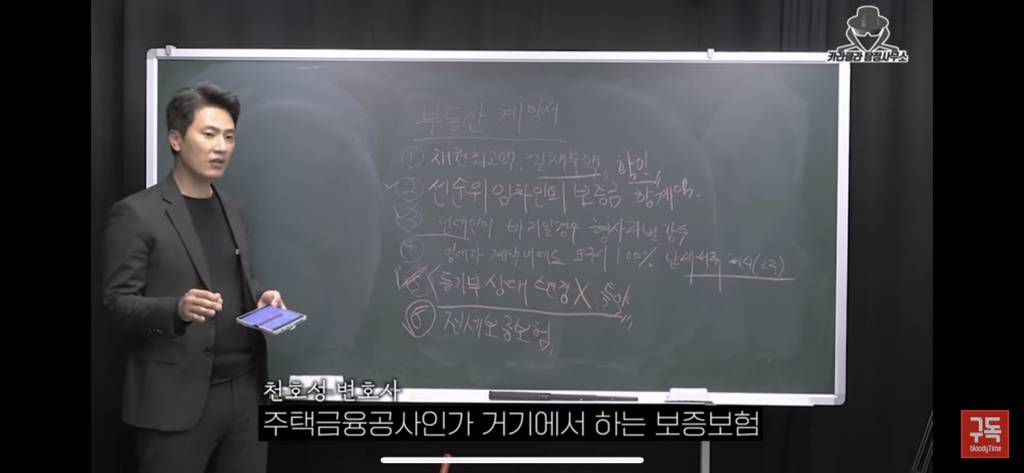 카라큘라 탐정사무소
부동산 계약서
① 채권최고액, 실채무액, 확인
② 선순위 임차인의 보증금 합계액.
③ 임대인이 바뀌었을경우 형사처벌 감수
④ 표준시 100%
⑤ 등기부 상태 변경 X
⑥ 전세보증보험
천호성 변호사
주택금융공사인가 거기에서 하는 보증보험
구독
bloodyTime